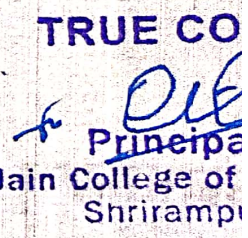 TRUE CO
Principa
Jain College of
Shrirampu